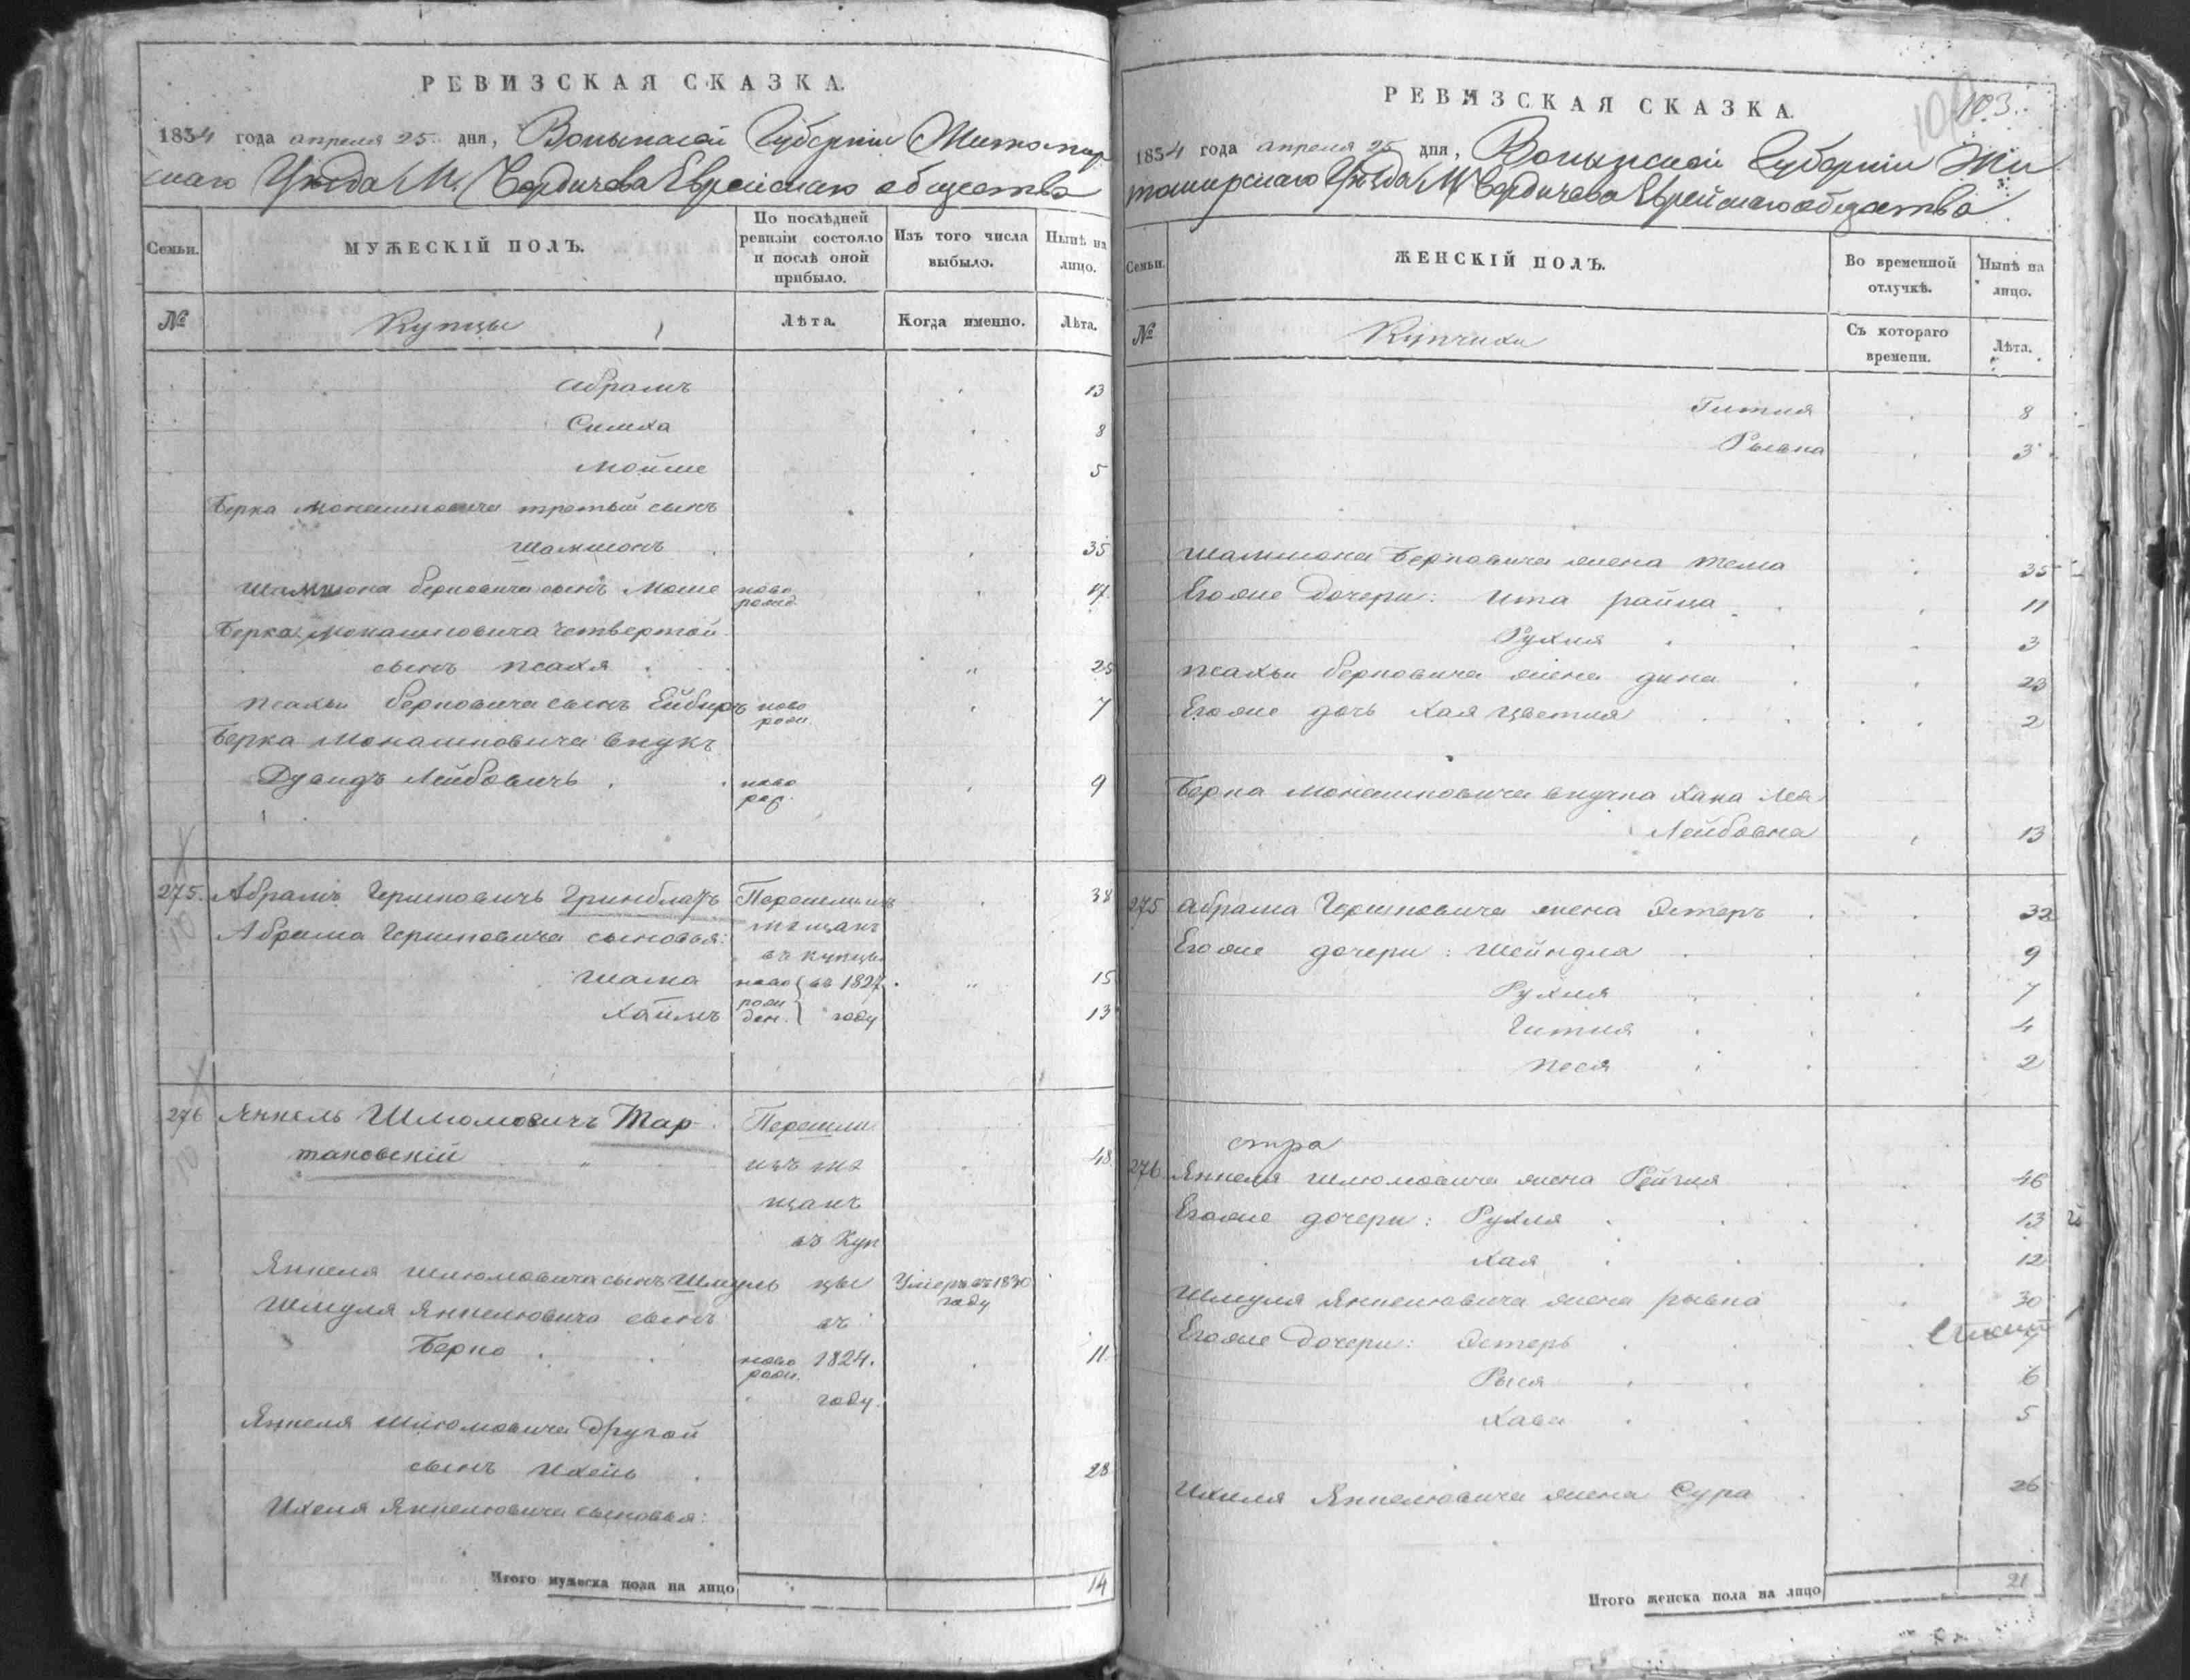 РЕВИЗСКАЯ СКАЗКА.
1834 года апреля 25 дня, Волынской Губерніи Житомир
скаго Уѣзда М. Бердичева Еврейскаго общества
Семьи.
МУЖЕСКІЙ ПОЛЪ.
По послѣдней
ревизіи состояло
и послѣ оной
прибыло.
Изъ того числа
выбыло.
Нынѣ на
лицо.
№
Купцы
Лѣта.
Когда именно.
Лѣта.
Абрамъ 13
Симха 8
Мойше 5
Берка Монашковича третый сынъ
Шамшонъ 35
Шамшона Берковича сынъ Моше ново
рожд
Берка Монашковича четвертой
сынъ Псахя 25
Псахьи Берковича сынъ ново 7
рож.
Берка Монашковича внукъ
Дувидъ Лейбовичъ ново 9
рož.
275. Абрамъ Гершковичъ Гринблатъ Перешли изъ 38
Абрама Гершковича сыновья: мѣщанъ
въ купцы
Шама ново въ 1827 15
рож
Хаимъ ден. году 13
276 Янкель Шлиомовичъ Тар Перешли
таковскій изъ мѣ 48
щанъ
въ Куп
Янкеля Шлиомовича сынъ Шмуль цы Умеръ въ 1830
году
Шмуля Янкелювича сынъ въ
Берко ново 1824. 11
рож.
году.
Янкеля Шлиомовича другой
сынъ Ихель 28
Ихеля Янкелювича сыновья:
Итого мужеска пола на лицо 14
103.
РЕВИЗСКАЯ СКАЗКА.
1834 года апреля 25 дня, Волынской Губерніи Жи
томирскаго Уѣзда М Бердичева Еврейскаго общества
Семьи.
ЖЕНСКІЙ ПОЛЪ.
Во временной
отлучкѣ.
Нынѣ на
лицо.
№
Купчихи
Съ котораго
времени.
Лѣта.
Гитля 8
Рывка 3
Шамшона Берковича жена Тема 35
Егоже Дочери: Ита Райца 11
Рухля 3
Псахьи Берковича жена Дина 23
Егоже дочь Хая Цветля 2
Берка Монашковича внучка Хана Лея
Лейбовна 13
275 Абрама Гершковича жена Эстеръ 32
Егоже дочери: Шейндля 9
Рухля 7
Гитля 4
Песя 2
276 Янкеля Шлиомовича жена Рейзля 46
Егоже дочери: Рухля 13
Хая 12
Шмуля Янкелювича жена Рывка 30
Егоже Дочери: Эстеръ 7
Рыся 6
Хава 5
Ихиля Янкелювича жена Сура 26
Итого женска пола на лицо 21